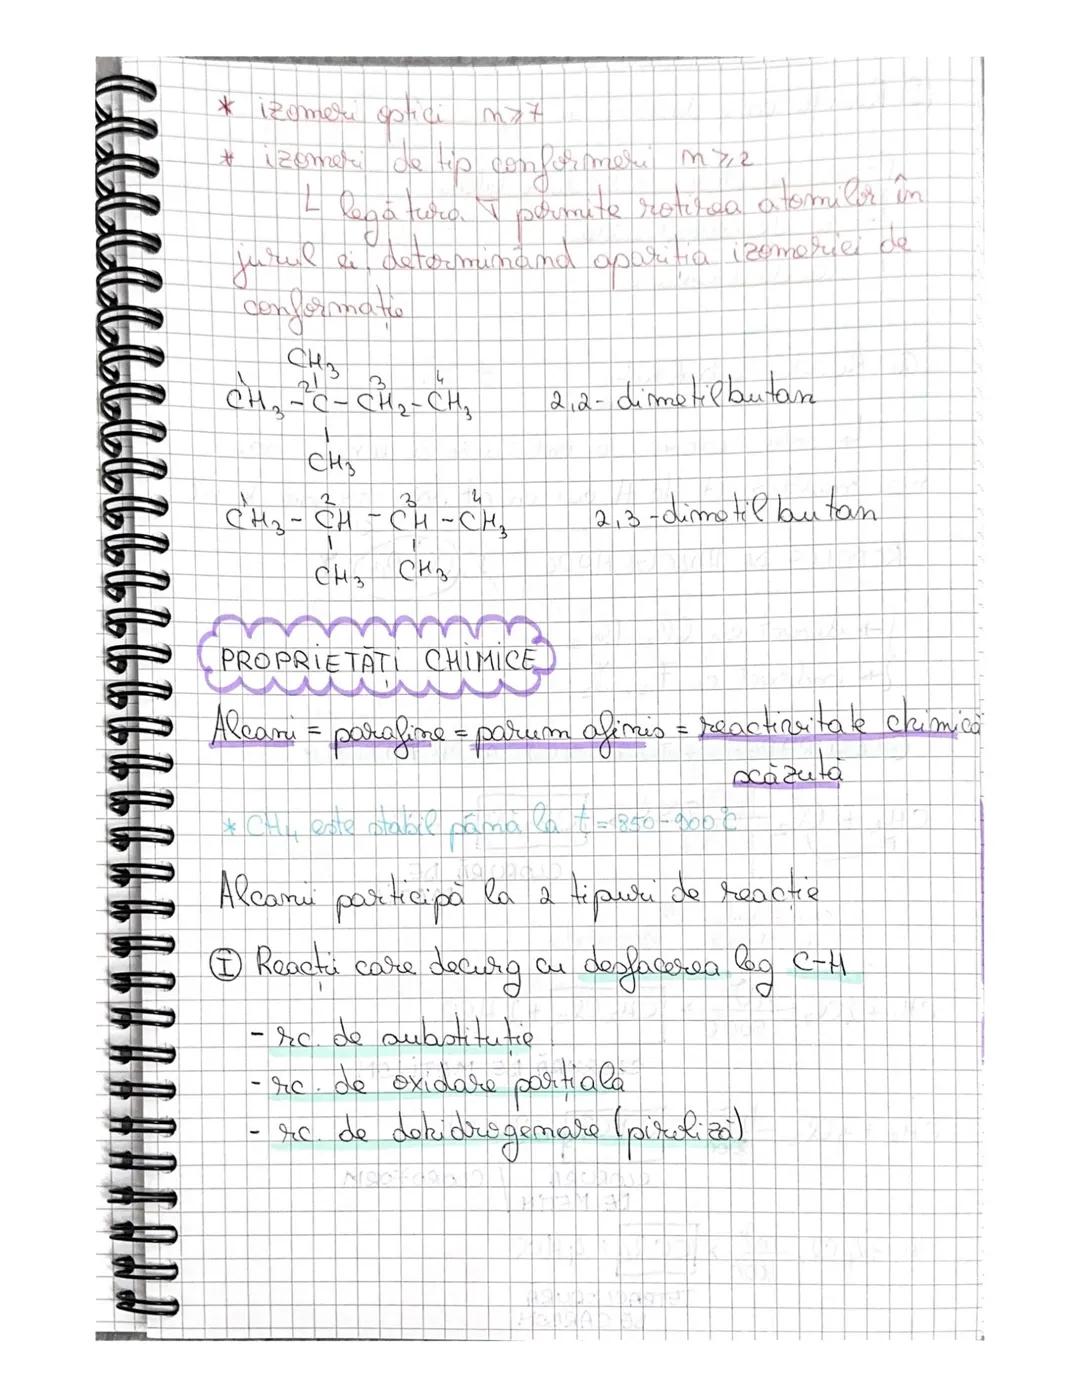 * izomeri optici n≥7
* izomeri de tip conformeri n≥2
└ legătura σ permite rotirea atomilor în
jurul ei, determinând apariția izomeriei de
conformație
CH3
1 2 3 4
CH3-C-CH2-CH3 2,2-dimetilbutan
CH3
1 2 3 4
CH3-CH-CH-CH3 2,3-dimetilbutan
CH3 CH3
PROPRIETĂȚI CHIMICE
Alcani = parafine = parum afinis = reactivitate chimică
scăzută
* CH4 este stabil până la t=850-900°C
Alcanii participă la 2 tipuri de reacție
I Reacții care decurg cu desfacerea leg C-H
- rc. de substituție
- rc. de oxidare parțială
- rc. de dehidrogenare (piroliză)